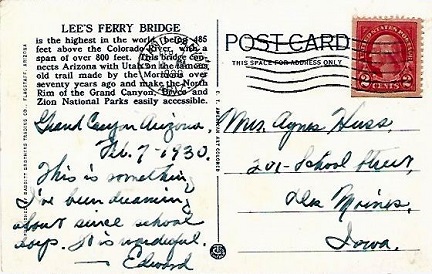 LEE'S FERRY BRIDGE
is the highest in the world, being 485
feet above the Colorado River, with a
span of over 800 feet. This bridge con-
nects Arizona with Utah on the famous
old trail made by the Mormons over
seventy years ago and make the North
Rim of the Grand Canyon, Bryce and
Zion National Parks easily accessible.
Grand Canyon Arizona,
Feb. 7-1930.
This is something
I've been dreaming
about since school
days. It is wonderful.
— Edward
BABBITT BROTHERS TRADING CO., FLAGSTAFF, ARIZONA
C. T. AMERICAN ART COLORED
POST CARD
THIS SPACE FOR ADDRESS ONLY
2 CENTS 2
Mrs. Agnes Huss,
201-School Street,
Des Moines,
Iowa.